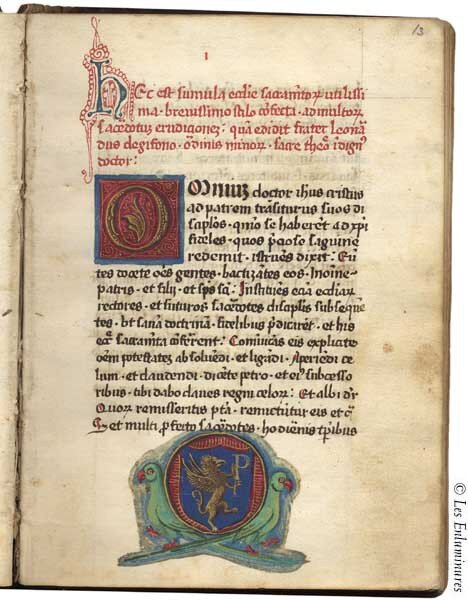 13
1
Hec est sumula ecclie sacramtor utilissi
ma · brevissimo stilo cōfecta · ad multor
sacedotuz erudigonez : quā edidit frater leonā
dus degifono · ordinis minor · sacre theo indign
doctor :
Omniuz doctor ihus cristus
ad patrem trāsiturus suos di
sciplos · qmō se haberet ad xpi
fideles · quos pcioso sāguine
redemit · istruēs dixit : Eū
tes docete oēs gentes · bactizātes eos · Inoīne
patris · et filij · et sps sci : Instituēs ecclar
rectores · et futuros sacedotes disciplis subseque
tes · ut sanā doctrinā · fidelibus pdicāret · et his
sacramta cōferent : Comūicās eis explicate
oēm potestatez absoluēdi · et ligādi · Apriēdi ce
lum · et claudendi · dicēte petro · et eis subcesso
ribus · tibi dabo claues regni celor : Et alibi dr
Quor remisseritis pctā · remictūtur eis et c
Et multi sacedotes · hodiernis tpribus
P
© Les Enluminures